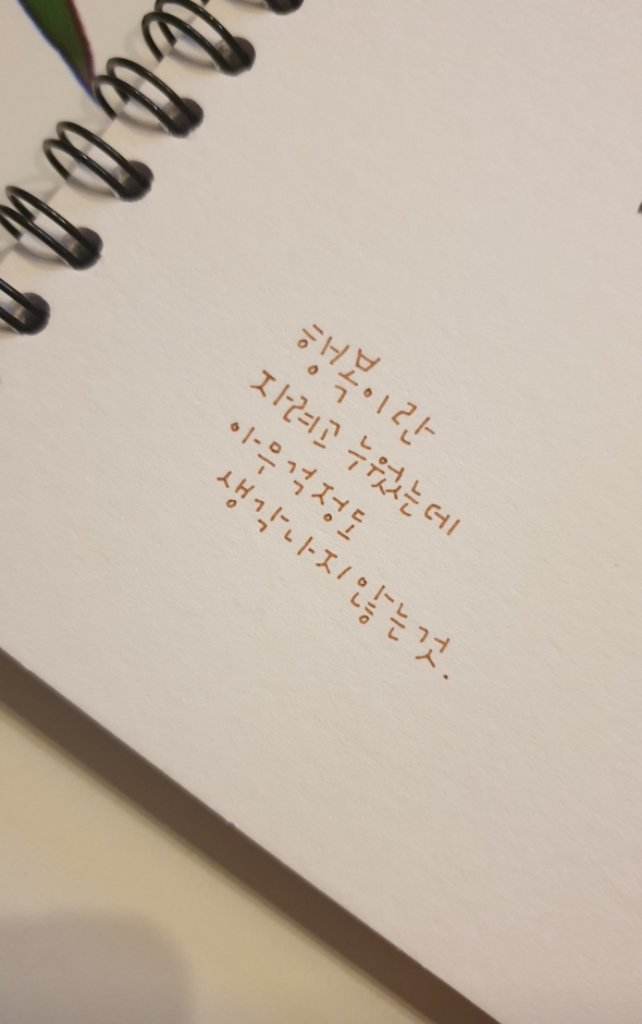 행복이란
자려고 누웠는데
아무 걱정도
생각나지 않는 것.